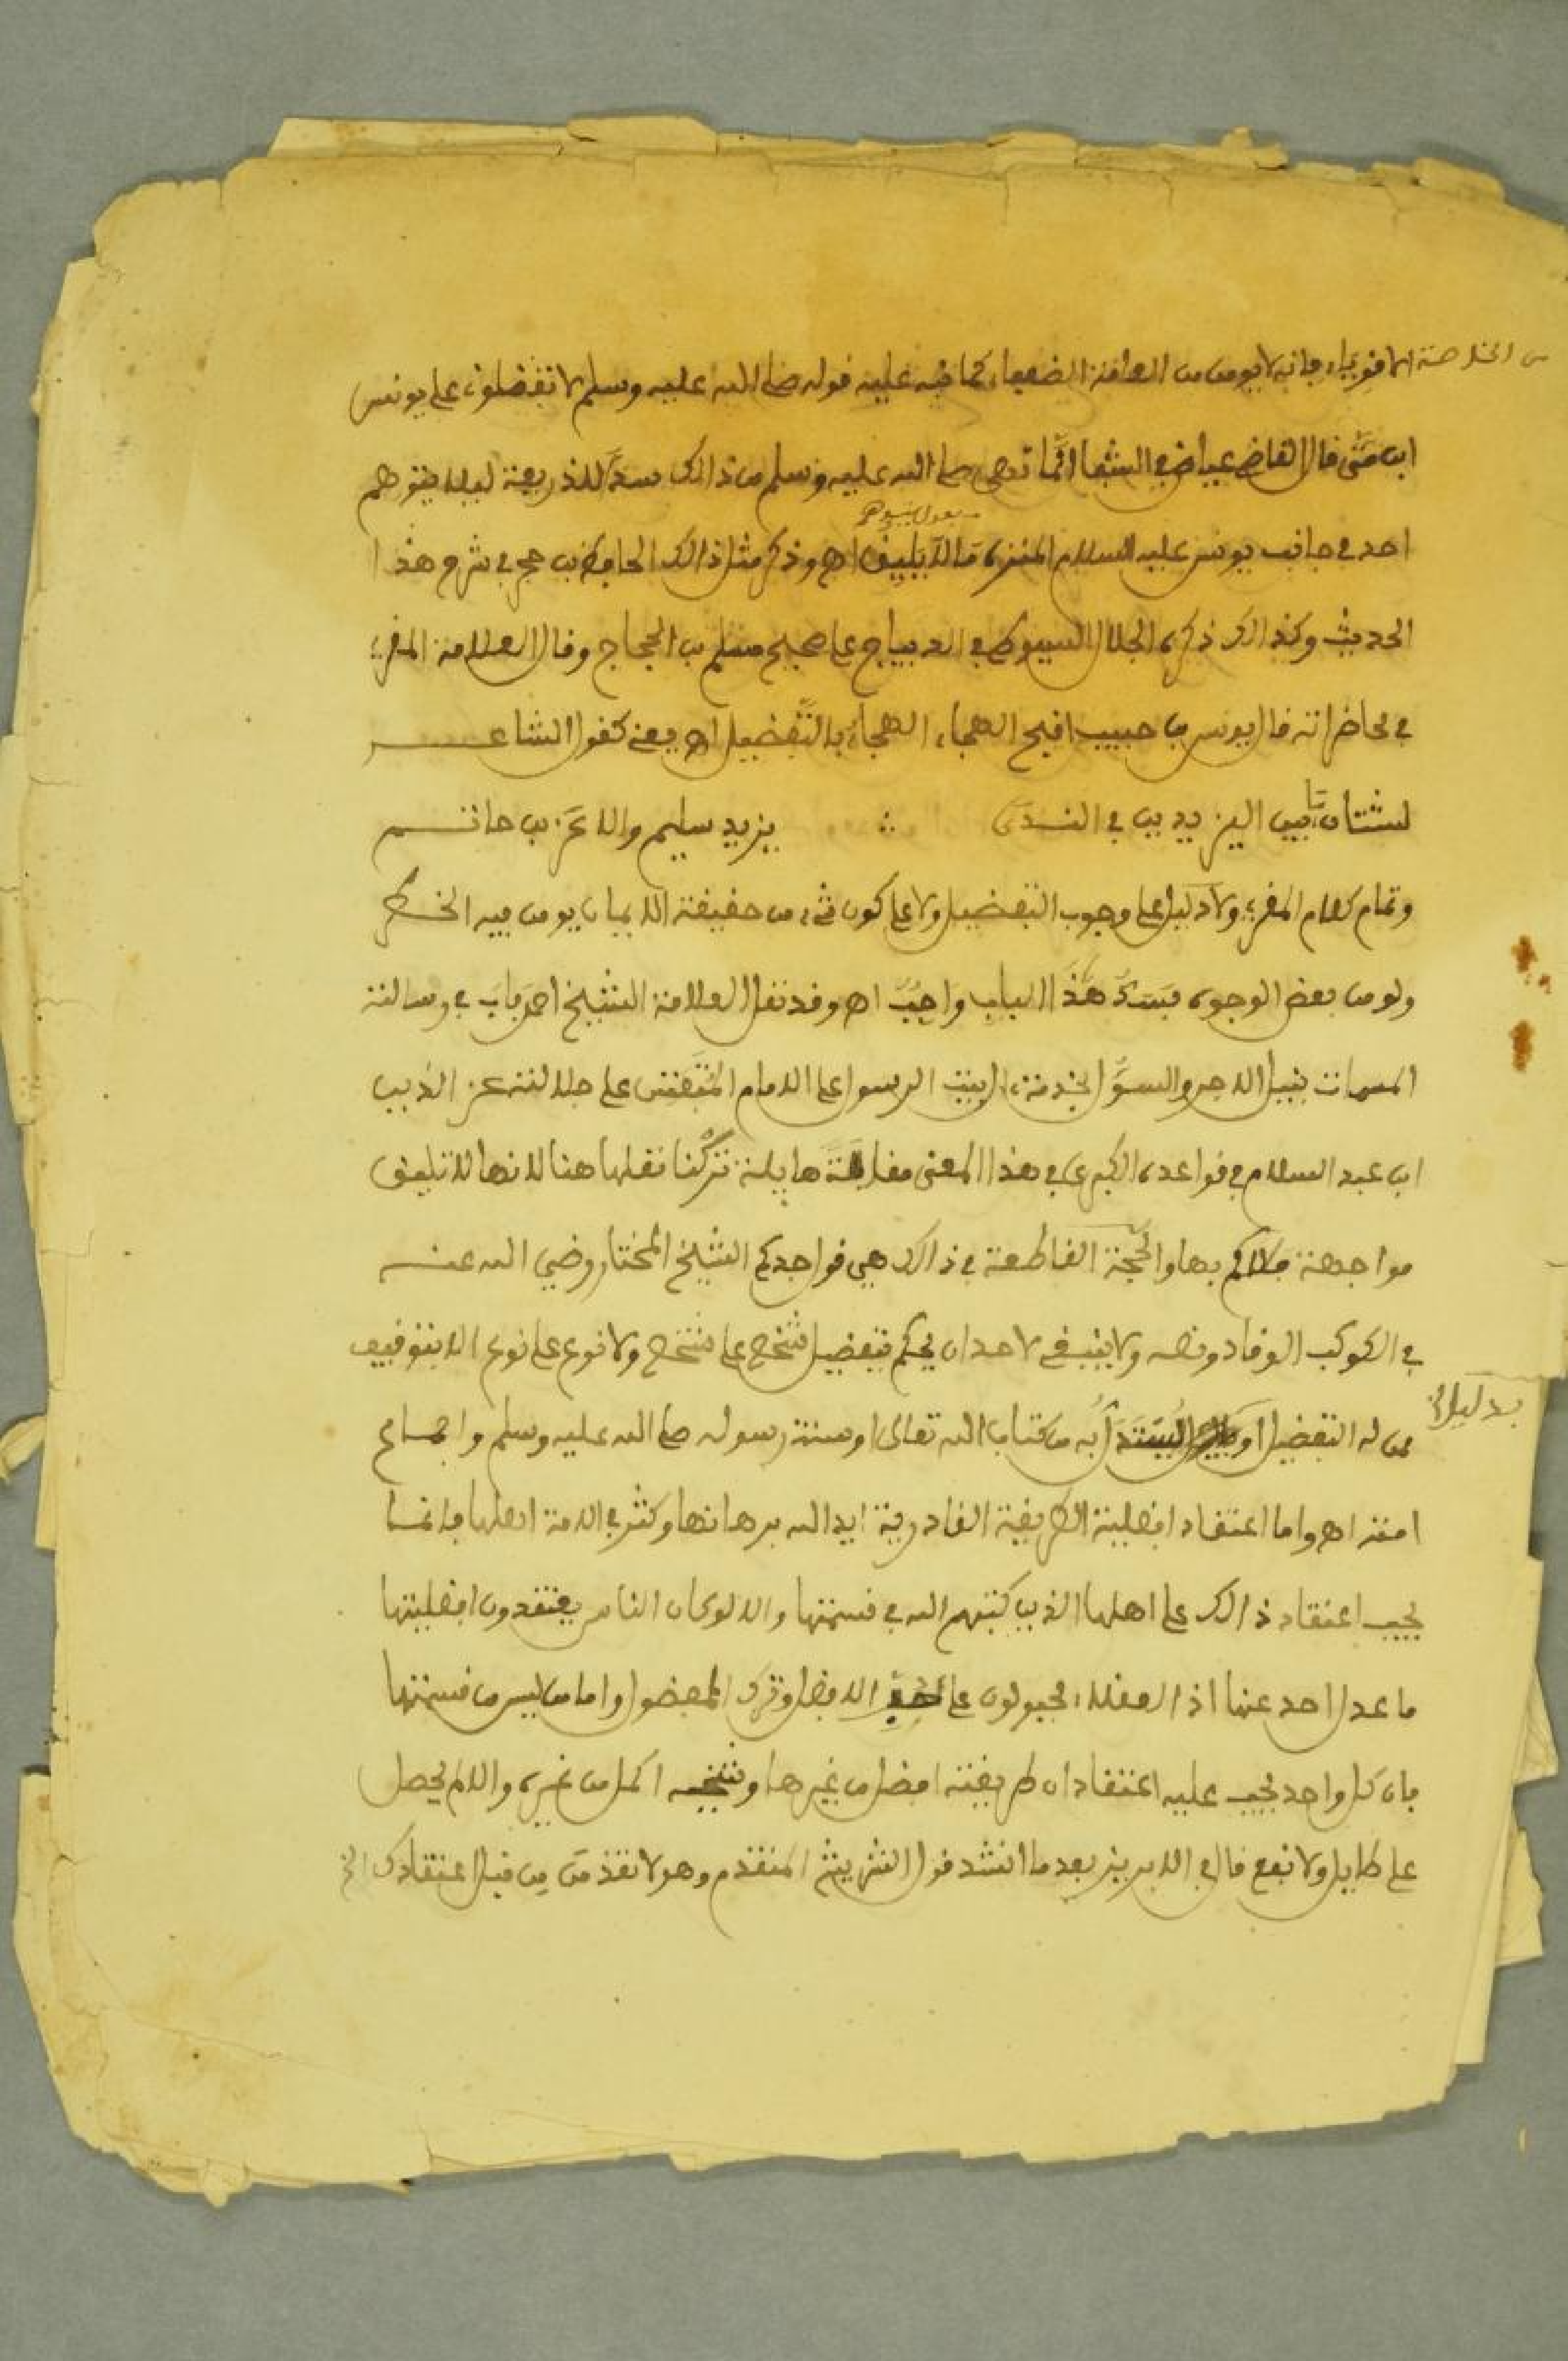 الاقوياء فانه لا يومن من العامة الضعفاء كما نبه عليه قوله صلى الله عليه وسلم لا تفضلوني على يونس
ابن متى قال القاضي عياض في الشفا انما نهى صلى الله عليه وسلم من ذالك سدا للذريعة ليلا يتوهم
احد في جانب يونس عليه السلام المنزه ما لا يليق اه وذكر مثل ذالك الحافظ بن حجر في شرح هذا
الحديث وكذالك ذكره الجلال السيوطي في الديباج على صحيح مسلم بن الحجاج وقال العلامة المقري
في محاضراته قال يونس بن حبيب اقبح الهجاء الهجاء بالتفضيل اه يعني كقول الشاعر
لشتان ما بين اليزيدين في الندى ؞ يزيد سليم والاغر بن حاتم
وتمام كلام المقري ولا دليل على وجوب التفضيل ولا على كون شيء من حقيقة الايمان يومن فيه الخطر
ولو من بعض الوجوه فسد هذا الباب واجب اه وقد نقل العلامة الشيخ احمد باب في رسالته
المسمات بنيل الاجر والسول بخدمة ال بيت الرسول على الامام المتفنن على جلالته عز الدين
ابن عبد السلام في قواعده الكبرى في هذا المعنى مقالة هايلة تركنا نقلها هنا لانها لا تليق
مواجهة مثلكم بها والحجة القاطعة في ذالك هي قول جدكم الشيخ المختار رضي الله عنه
في الكوكب الوقاد ونصه ولا ينبغي لاحد ان يحكم بتفضيل شخص على شخص ولا نوع على نوع الا بتوقيف
ممن له التفضيل او بدليل يستدل به من كتاب الله تعالى او سنة رسوله صلى الله عليه وسلم واجماع
امته اه واما اعتقاد افضلية الطريقة القادرية ايد الله برهانها وكثر في الامة اهلها فانما
يجب اعتقاد ذالك على اهلها الذين كتبهم الله في قسمتها والا لو كان الناس يعتقدون افضليتها
ما عدل احد عنها اذ العقلاء مجبولون على الافضل وترك المفضول واما من ليس من قسمتها
فان كل واحد يجب عليه اعتقاد ان طريقته افضل من غيرها وشيخه اكمل من غيره والا لم يحصل
على طايل ولا نفع قال في الابريز بعد ما انشد قول الشريشي المتقدم وهو لا تقدمن من قبل اعتقادك الخ